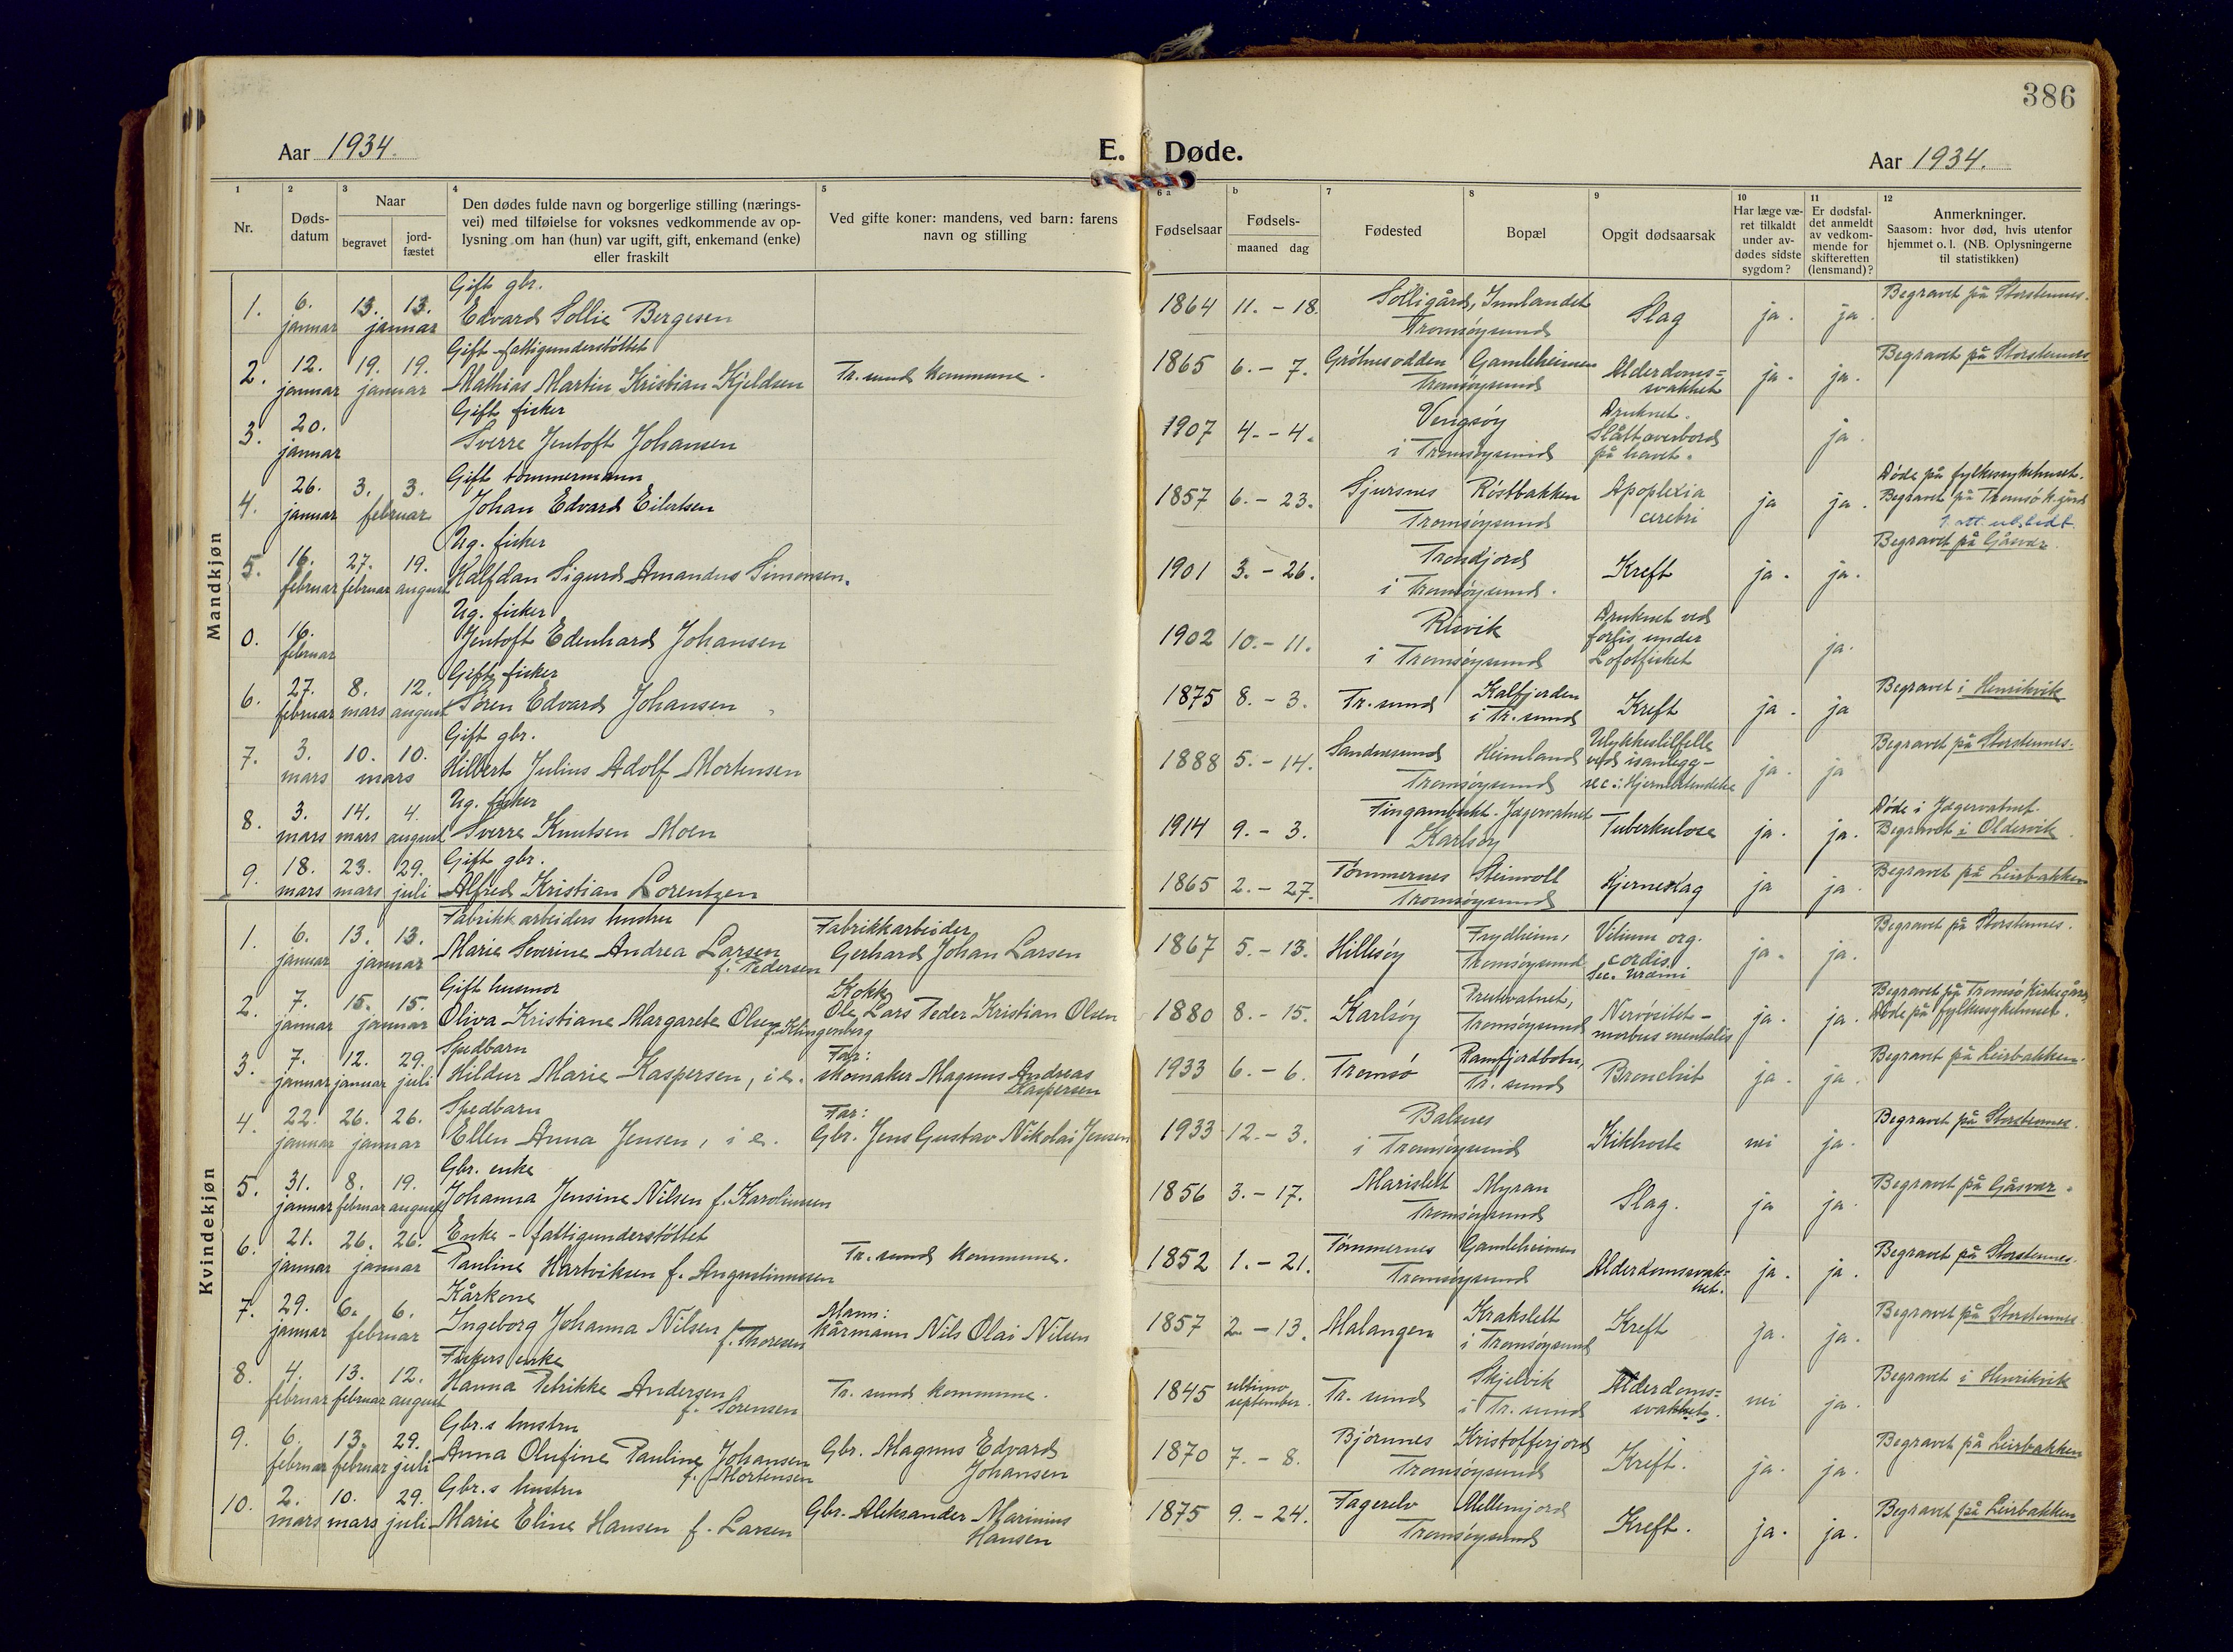 386
Aar 1934.
E. Døde.
Aar 1934.
1 2 3 4 5 6 a b 7 8 9 10 11 12
Nr.
Døds-
datum
Naar
begravet
jord-
fæstet
Den dødes fulde navn og borgerlige stilling (nærings-
vei) med tilføielse for voksnes vedkommende av op-
lysning om han (hun) var ugift, gift, enkemand (enke)
eller fraskilt
Ved gifte koner: mandens, ved barn: farens
navn og stilling
Fødselsaar
Fødsels-
maaned dag
Fødested
Bopæl
Opgit dødsaarsak
Har læge væ-
ret tilkaldt
under av-
dødes sidste
sygdom?
Er dødsfal-
det anmeldt
av vedkom-
mende for
skifteretten
(lensmand)?
Anmerkninger.
Saasom: hvor død, hvis utenfor
hjemmet o. l. (NB. Oplysningerne
til statistikken)
Mandkjøn
Gift gbr. Begravet på Storstennes.
1. 6. 13. 13. Edvard Sollie Bergesen 1864 11. - 18. Solligård, Innlandet Slag ja. ja.
januar januar Tromsøysund
Gift fattigunderstøttet Begravet på Storstennes
2. 12. 19. 19. Mathias Martin Kristian Kjeldsen Tr. sund kommune. 1865 6. - 7. Grøtnesodden Gamleheimen Alderdoms= ja. ja.
januar januar Tromsøysund svakhet
Gift fisker Vengsøy Druknet.
3. 20. Sverre Jentoft Johansen 1907 4. - 4. Slått overbord ja.
januar i Tromsøysund på havet.
Gift tømmermann Døde på fylkessykehuset.
4. 26. 3. 3. Johan Edvard Eilertsen 1857 6. - 23. Sjursnes Røstbakken Apoplexia ja ja. Begravet på Tromsø k.gård
januar februar Tromsøysund cerebri
1. att. utstedt.
Ug. fisker Trondjord Begravet på Gåsvær
5. 16. 27. 19. Halfdan Sigurd Amandus Simonsen. 1901 3. - 26. Kreft ja. ja.
februar februar august i Tromsøysund.
Ug. fisker Risvik Druknet ved
0. 16. Jentoft Edenhard Johansen 1902 10. - 11. forlis under ja.
februar i Tromsøysund Lofotfisket
Gift fisker Begravet i Henrikvik
6. 27. 8. 12. Søren Edvard Johansen 1875 8. - 3. Tr. sund Kalfjorden Kreft ja. ja
februar mars august i Tr. sund
Gift gbr. Ulykkestilfelle Begravet på Storstennes.
7. 3. 10. 10. Hilbert Julius Adolf Mortensen 1888 5. - 14. Sandnesund Heimland ved isanlegg- ja. ja
mars mars Tromsøysund
Ug. fisker Døde i Jægervatnet.
8. 3. 14. 4. Sverre Knutsen Moen 1914 9. - 3. Jægervatnet Tuberkulose ja. ja. Begravet i Oldervik.
mars mars august Karlsøy
Gift gbr. Begravet på Leirbakken
9. 18. 23. 29. Alfred Kristian Lorentzen 1865 2. - 27. Tømmernes Steinvoll Hjerneslag ja ja.
mars mars juli Tromsøysund
Kvindekjøn
Fabrikkarbeiders hustru Fabrikkarbeider Begravet på Storstennes.
1. 6. 13. 13. Marie Severine Andrea Larsen Gerhard Johan Larsen 1867 5. - 13. Hillesøy Frydheim, Vitium org. ja. ja.
januar januar f. Pedersen Tromsøysund cordis.
Sec. uræmi
Gift husmor Kokk Begravet på Tromsø kirkegård
2. 7. 15. 15. Oliva Kristiane Margarete Olsen Ole Lars Peder Kristian Olsen 1880 8. - 15. Karlsøy Prestvatnet, Nervøsitet - ja. ja. Døde på fylkessykehuset.
januar januar f. Klingenberg Tromsøysund morbus mentalis
Spedbarn Far: Begravet på Leirbakken.
3. 7. 12. 29. Hildur Marie Kaspersen, i e. skomaker Magnus Andreas 1933 6. - 6. Tromsø Ramfjordbotn, Bronchit ja. ja.
januar januar juli Kaspersen Tr. sund
Spedbarn Far: Balsnes Begravet på Storstennes.
4. 22. 26. 26. Ellen Anna Jensen, i e. Gbr. Jens Gustav Nikolai Jensen 1933 12. - 3. Kikhoste nei ja.
januar januar i Tromsøysund
Gbr. enke Begravet på Gåsvær.
5. 31. 8. 19. Johanna Jensine Nilsen f. Karolinusen 1856 3. - 17. Marislett Myran Slag. ja ja.
januar februar august Tromsøysund
Enke - fattigunderstøttet Begravet på Storstennes.
6. 21. 26. 26. Pauline Hartviksen f. Augustinussen Tr. sund kommune. 1852 1. - 21. Tømmernes Gamleheimen Alderdomsvak= ja. ja.
januar januar Tromsøysund het.
Kårkone Mann: Begravet på Storstennes
7. 29. 6. 6. Ingeborg Johanna Nilsen kårmann Nils Olai Nilsen 1857 2. - 13. Malangen Krakslett Kreft ja. ja.
januar februar f. Thoresen i Tromsøysund
Fiskers enke Begravet i Henrikvik
8. 4. 13. 12. Hanna Petrikke Andersen Tr. sund kommune. 1845 ultimo Tr. sund Skjelvik Alderdoms= nei ja.
februar februar august f. Sørensen september. i Tr. sund svakhet.
Gbr.s hustru Begravet på Leirbakken
9. 6. 13. 29. Anna Olufine Pauline Johansen Gbr. Magnus Edvard 1870 7. - 8. Bjørnnes Kristofferjord Kreft. ja. ja.
februar februar juli f. Mortensen Johansen Tromsøysund
Gbr.s hustru Begravet på Leirbakken
10. 2. 10. 29. Marie Eline Hansen f. Larsen Gbr. Aleksander Marinius 1875 9. - 24. Fagerelv Mellemjord Kreft. ja. ja.
mars mars juli Hansen Tromsøysund